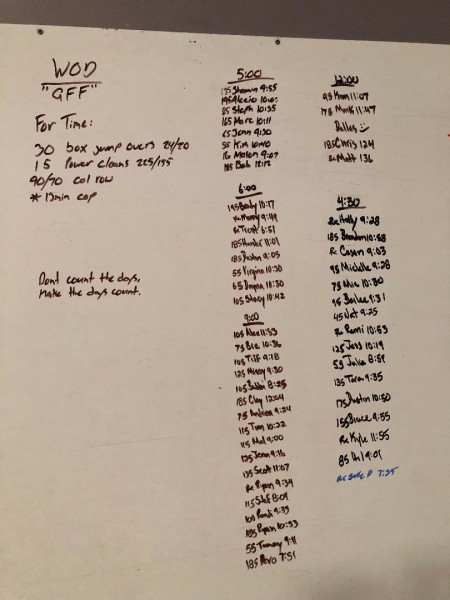 WOD
"GFF"
For Time:
30 box jump overs 24/20
15 Power cleans 225/155
90/70 cal row
* 13min cap
Dont count the days,
Make the days count.
5:00
135 Shawn 9:55
195 Alecio 10:01
85 Steph 10:35
165 Marc 10:11
65 Jenn 9:30
55 Kim 10:40
Rx Mason 9:07
185 Bob 12:12
6:00
195 Body 10:17
Rx Manny 9:49
Rx Trent 6:51
185 Hunter 11:01
185 Dustin 9:05
55 Virginia 10:30
65 11:30
105 Stacy 10:42
9:00
105 Alee 11:53
75 Bre 10:36
105 Tiff 9:18
125 Missy 9:30
105 8:25
185 Clay 12:04
75 Andrea 9:24
115 Tom 10:22
115 Mel 9:00
125 Jenn 9:16
135 Scott 11:07
Rx Ryan 9:34
115 Stef 8:09
105 Randi 9:33
185 Ryan 10:33
55 Tammy 9:11
185 7:51
12:00
95 11:07
175 Mark 11:47
Dallas
185 Chris 124
Rx Matt 136
4:30
Rx Holly 9:28
185 Brandon 10:58
Rx Casen 9:03
95 Michelle 9:28
75 10:30
95 Bailee 9:31
45 Nat 9:25
Rx Remi 10:53
125 Jess 10:19
55 Julia 8:59
135 Tara 9:35
175 Dustin 10:50
155 Bruce 9:55
Rx Kyle 11:55
85 9:01
Rx 7:35